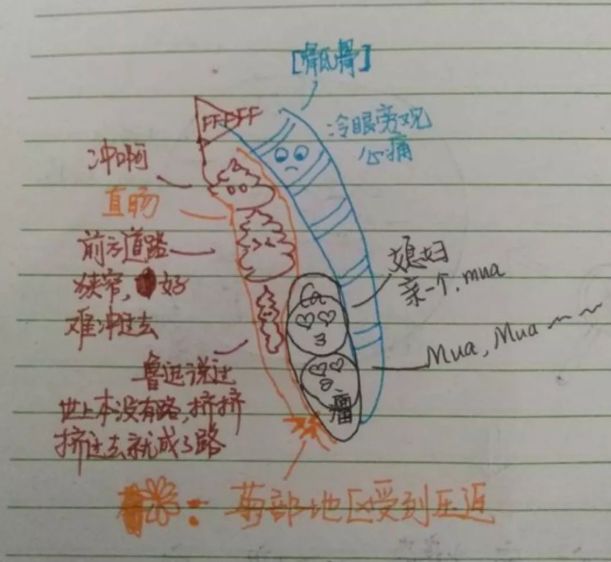 [骶骨]
FFFFF
冷眼旁观
心痛
冲啊
直肠
前方道路
狭窄,好
难冲过去
媳妇
亲一个,mua
Mua, Mua~~
鲁迅说过
世上本没有路,挤挤
挤过去就成了路
瘤
:菊部地区受到压迫